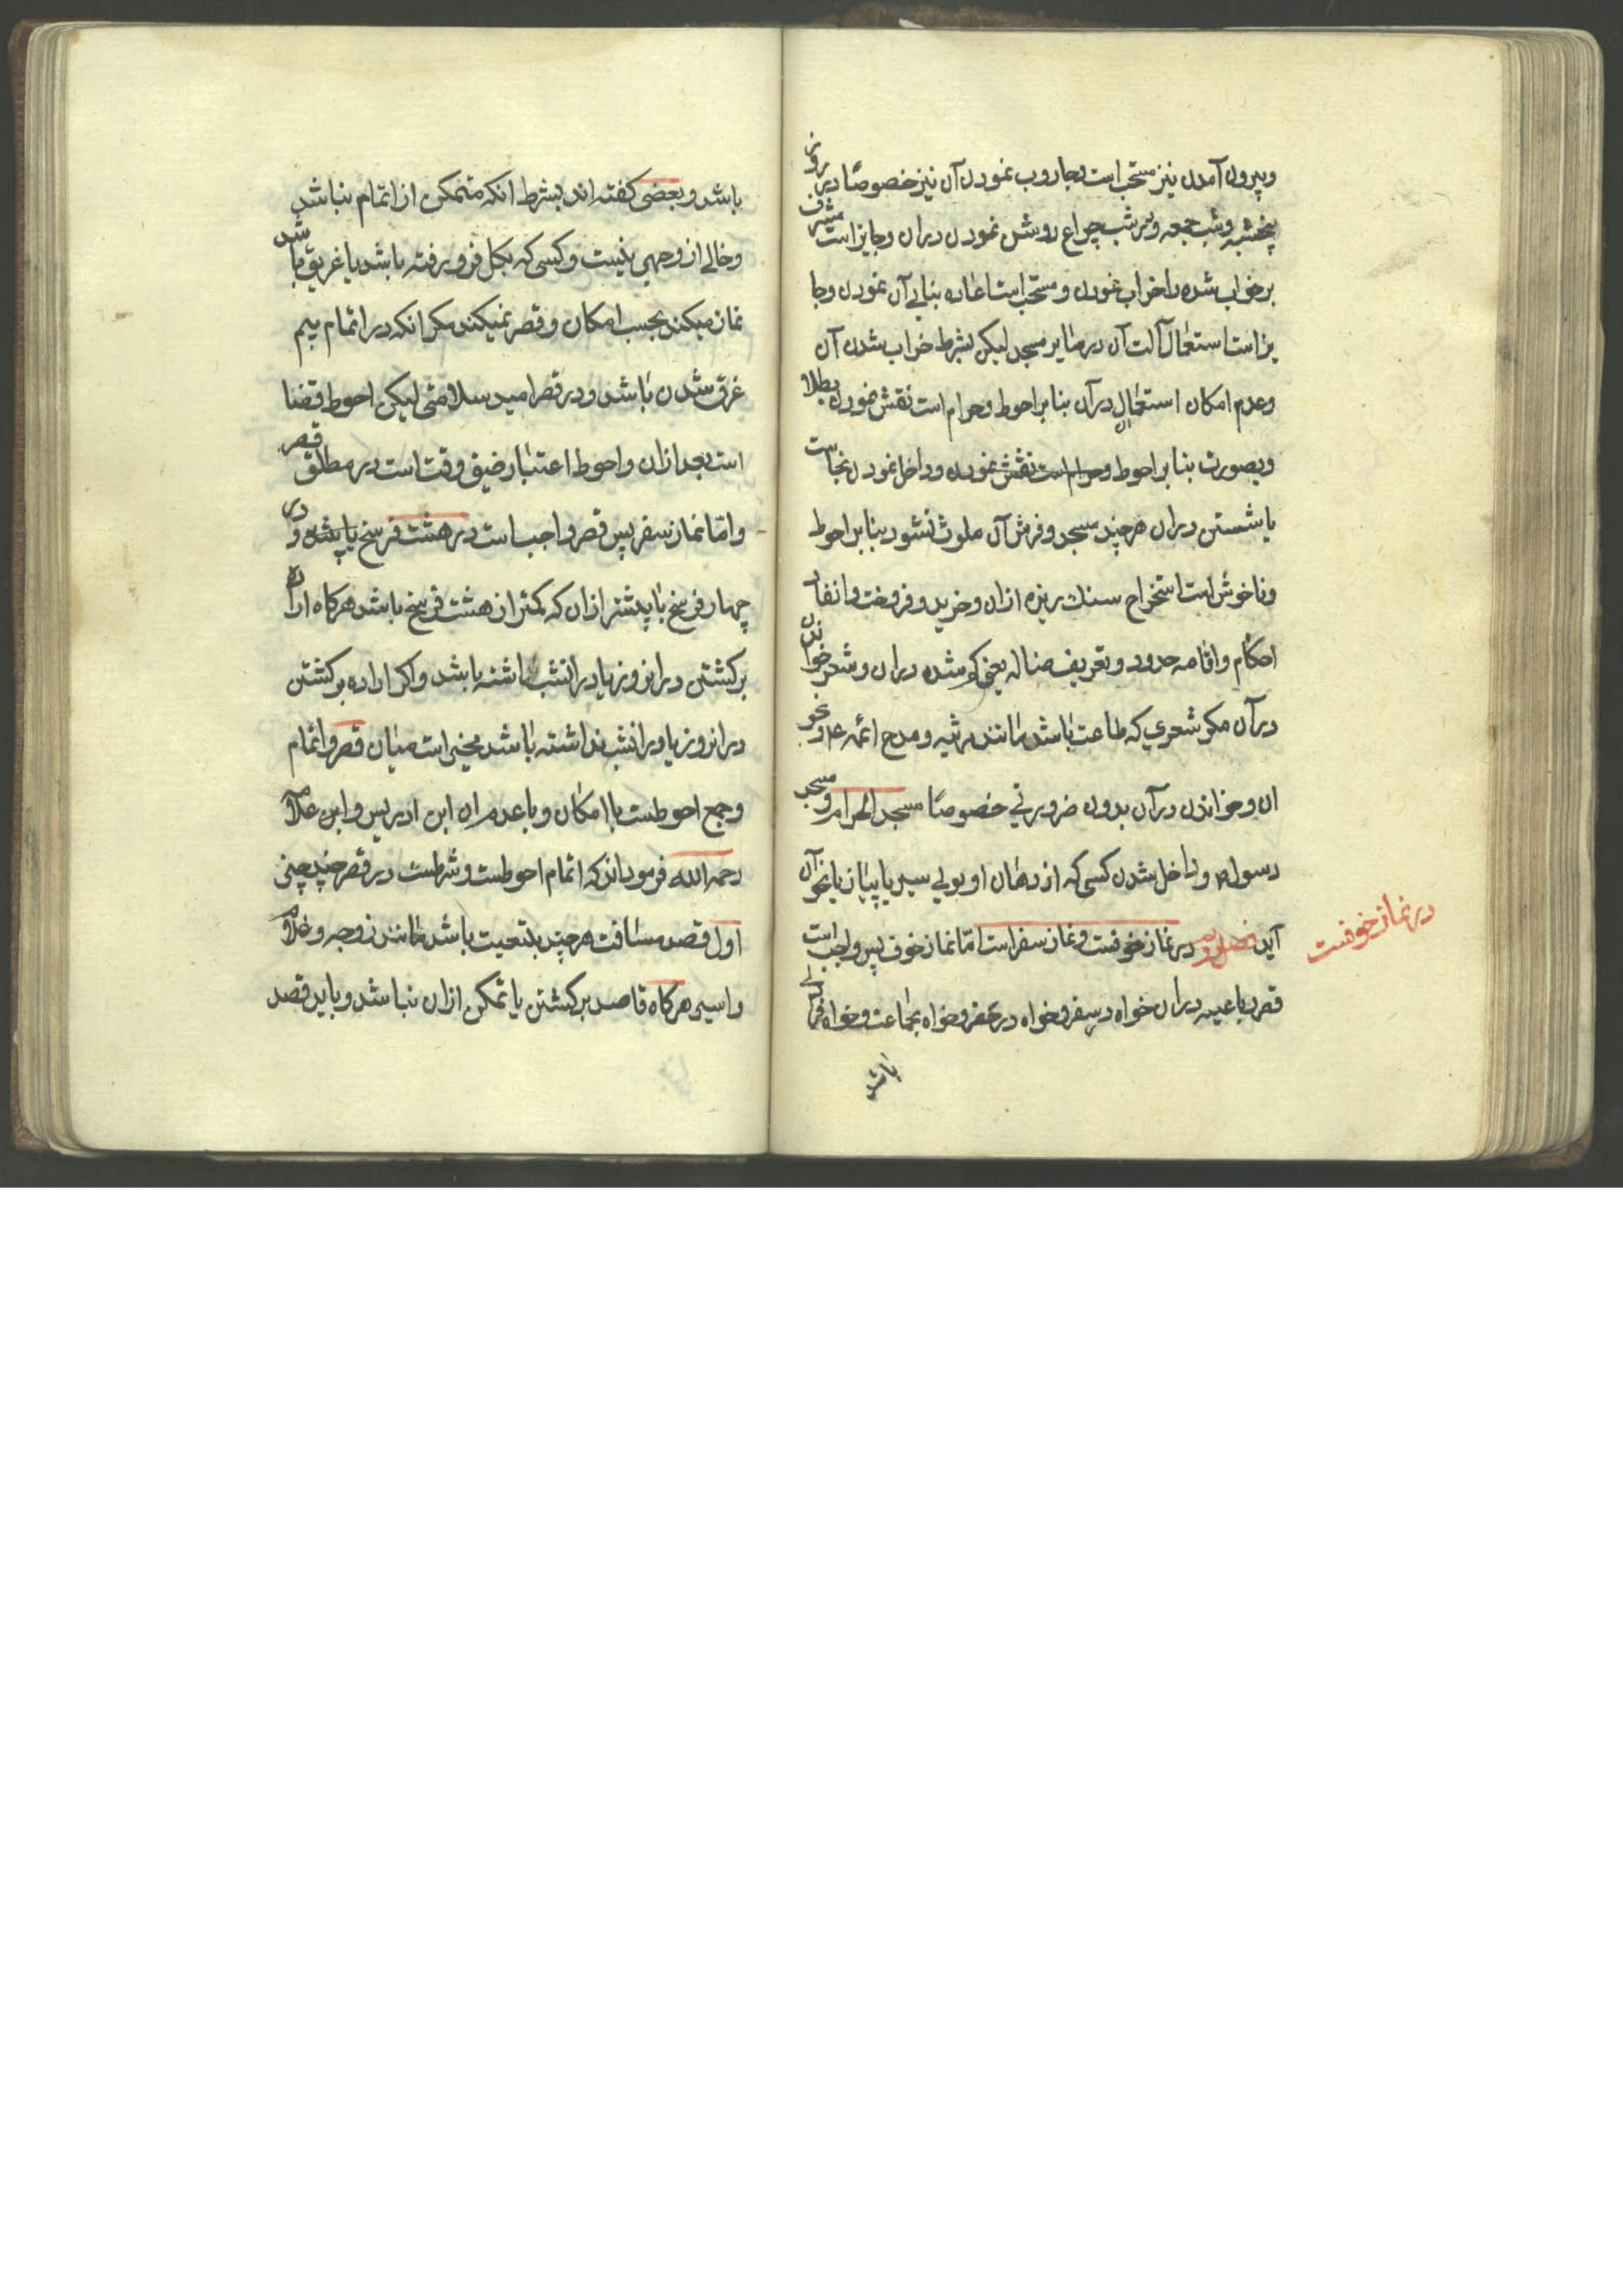 وبیرون آمدن نیز مستحب است وجاروب نمودن آن نیز خصوصًا در روز
پنجشنبه وشب جمعه ودر شب چراغ روشن نمودن دران وجایز است مشرف
بر خواب شده را خراب نمودن ومستحب است اعاده بنای آن نمودن وجا
یز است استعمال آلت آن در سایر مسجد لیکن بشرط خراب شدن آن
وعدم امکان استعمال درآن بنا بر احوط وحرام است نقش نمودن بطلا
وبصورت بنا بر احوط وحرام است نقش نمودن وداخل نمودن نجاست
یا شستن دران هرچند مسجد وفرش آن ملوث نشود بنا بر احوط
وناخوش است استخراج سنك ریزه ازان وخرید وفروخت وانفاد
احکام واقامه حدود وتعریف ضاله یعنی کم شده دران وشعر خواندن
درآن مکر شعری که طاعت باشد مانند مرثیه ومدح ائمه ع و نحو
ان وخواندن درآن بدون ضرورتی خصوصًا مسجد الحرام ومسجد
رسول ص وداخل شدن کسی که از دهان او بوی سیر یا پیاز یا نحو آن
آید فصل دویم در نماز خوفست ونماز سفر است امّا نماز خوف پس واجب است
قصر رباعیه دران خواه در سفر وخواه در حضر وخواه بجماعت وخواه فرادی
باشد
در نماز خوفست
باشد وبعضی کفته اند بشرط انکه متمکن از اتمام نباشد
وخالی از وجهی نیست وکسی که بکل فرو رفته باشد یا غریق باشد
نماز میکند بحسب امکان وقصر نمیکند مکر انکه در اتمام بیم
غرق شدن باشد ودر قصر امید سلامتی لیکن احوط قضا
است بعد ازان واحوط اعتبار ضیق وقت است در مطلق قصر
وامّا نماز سفر پس قصر واجب است در هشت فرسخ یا پیشتر و در
چهار فرسخ یا پیشتر ازان که کمتر از هشت فرسخ باشد هرکاه اراده
برکشتن در انروز یا در انشب داشته باشد واکر اراده برکشتن
در انروز یا در انشب نداشته باشد مخیر است میان قصر واتمام
وجمع احوطست با امکان وبا عدم ان ابن ادریس وابن علامه
رحمه الله فرموده‌اند که اتمام احوطست وشرطست در قصر چند چیز
اول قصد مسافت هرچند بتبعیت باشد مانند زوجه وغلام
واسیر هرکاه قاصد برکشتن با تمکن ازان نباشد وباید قصد